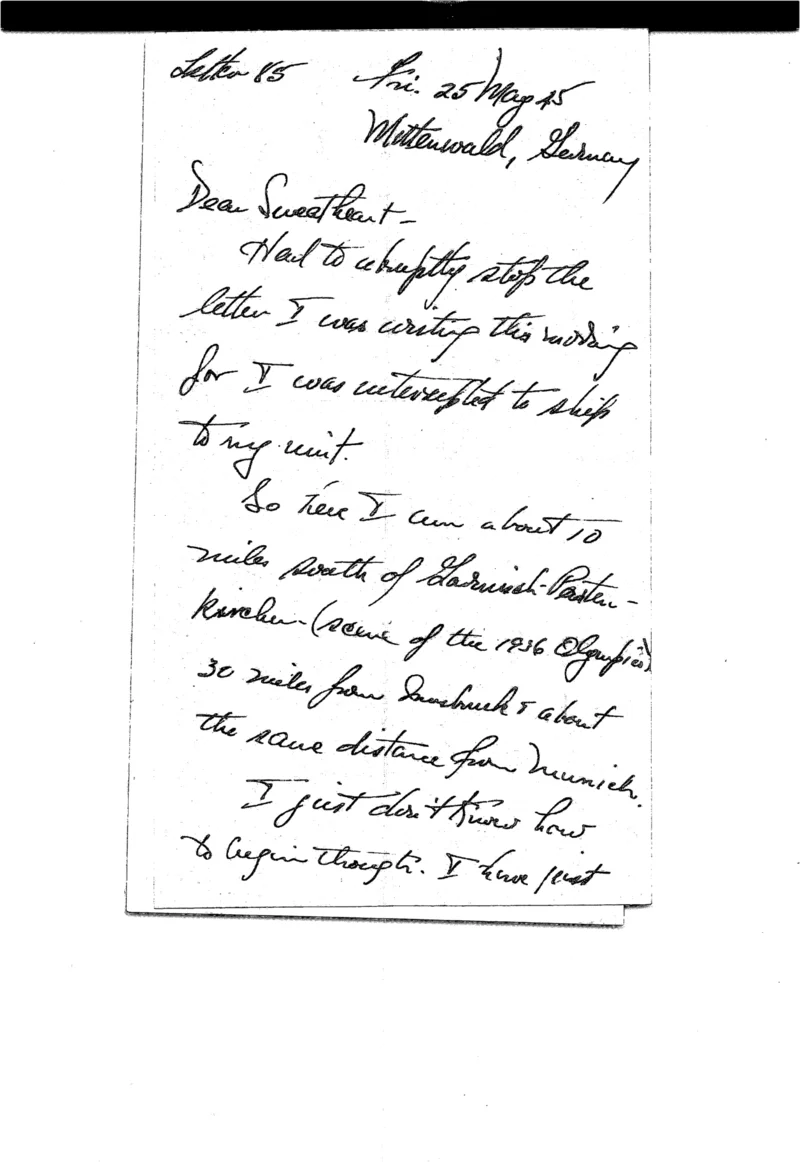 Letter 85 Fri. 25 May 45
Mittenwald, Germany
Dear Sweetheart -
Had to abruptly stop the
letter I was writing this morning
for I was interrupted to ship
to my unit.
So here I am about 10
miles south of Garmisch-Parten-
kirchen - (scene of the 1936 Olympics)
30 miles from Innsbruck & about
the same distance from Munich.
I just don't know how
to begin though. I have just